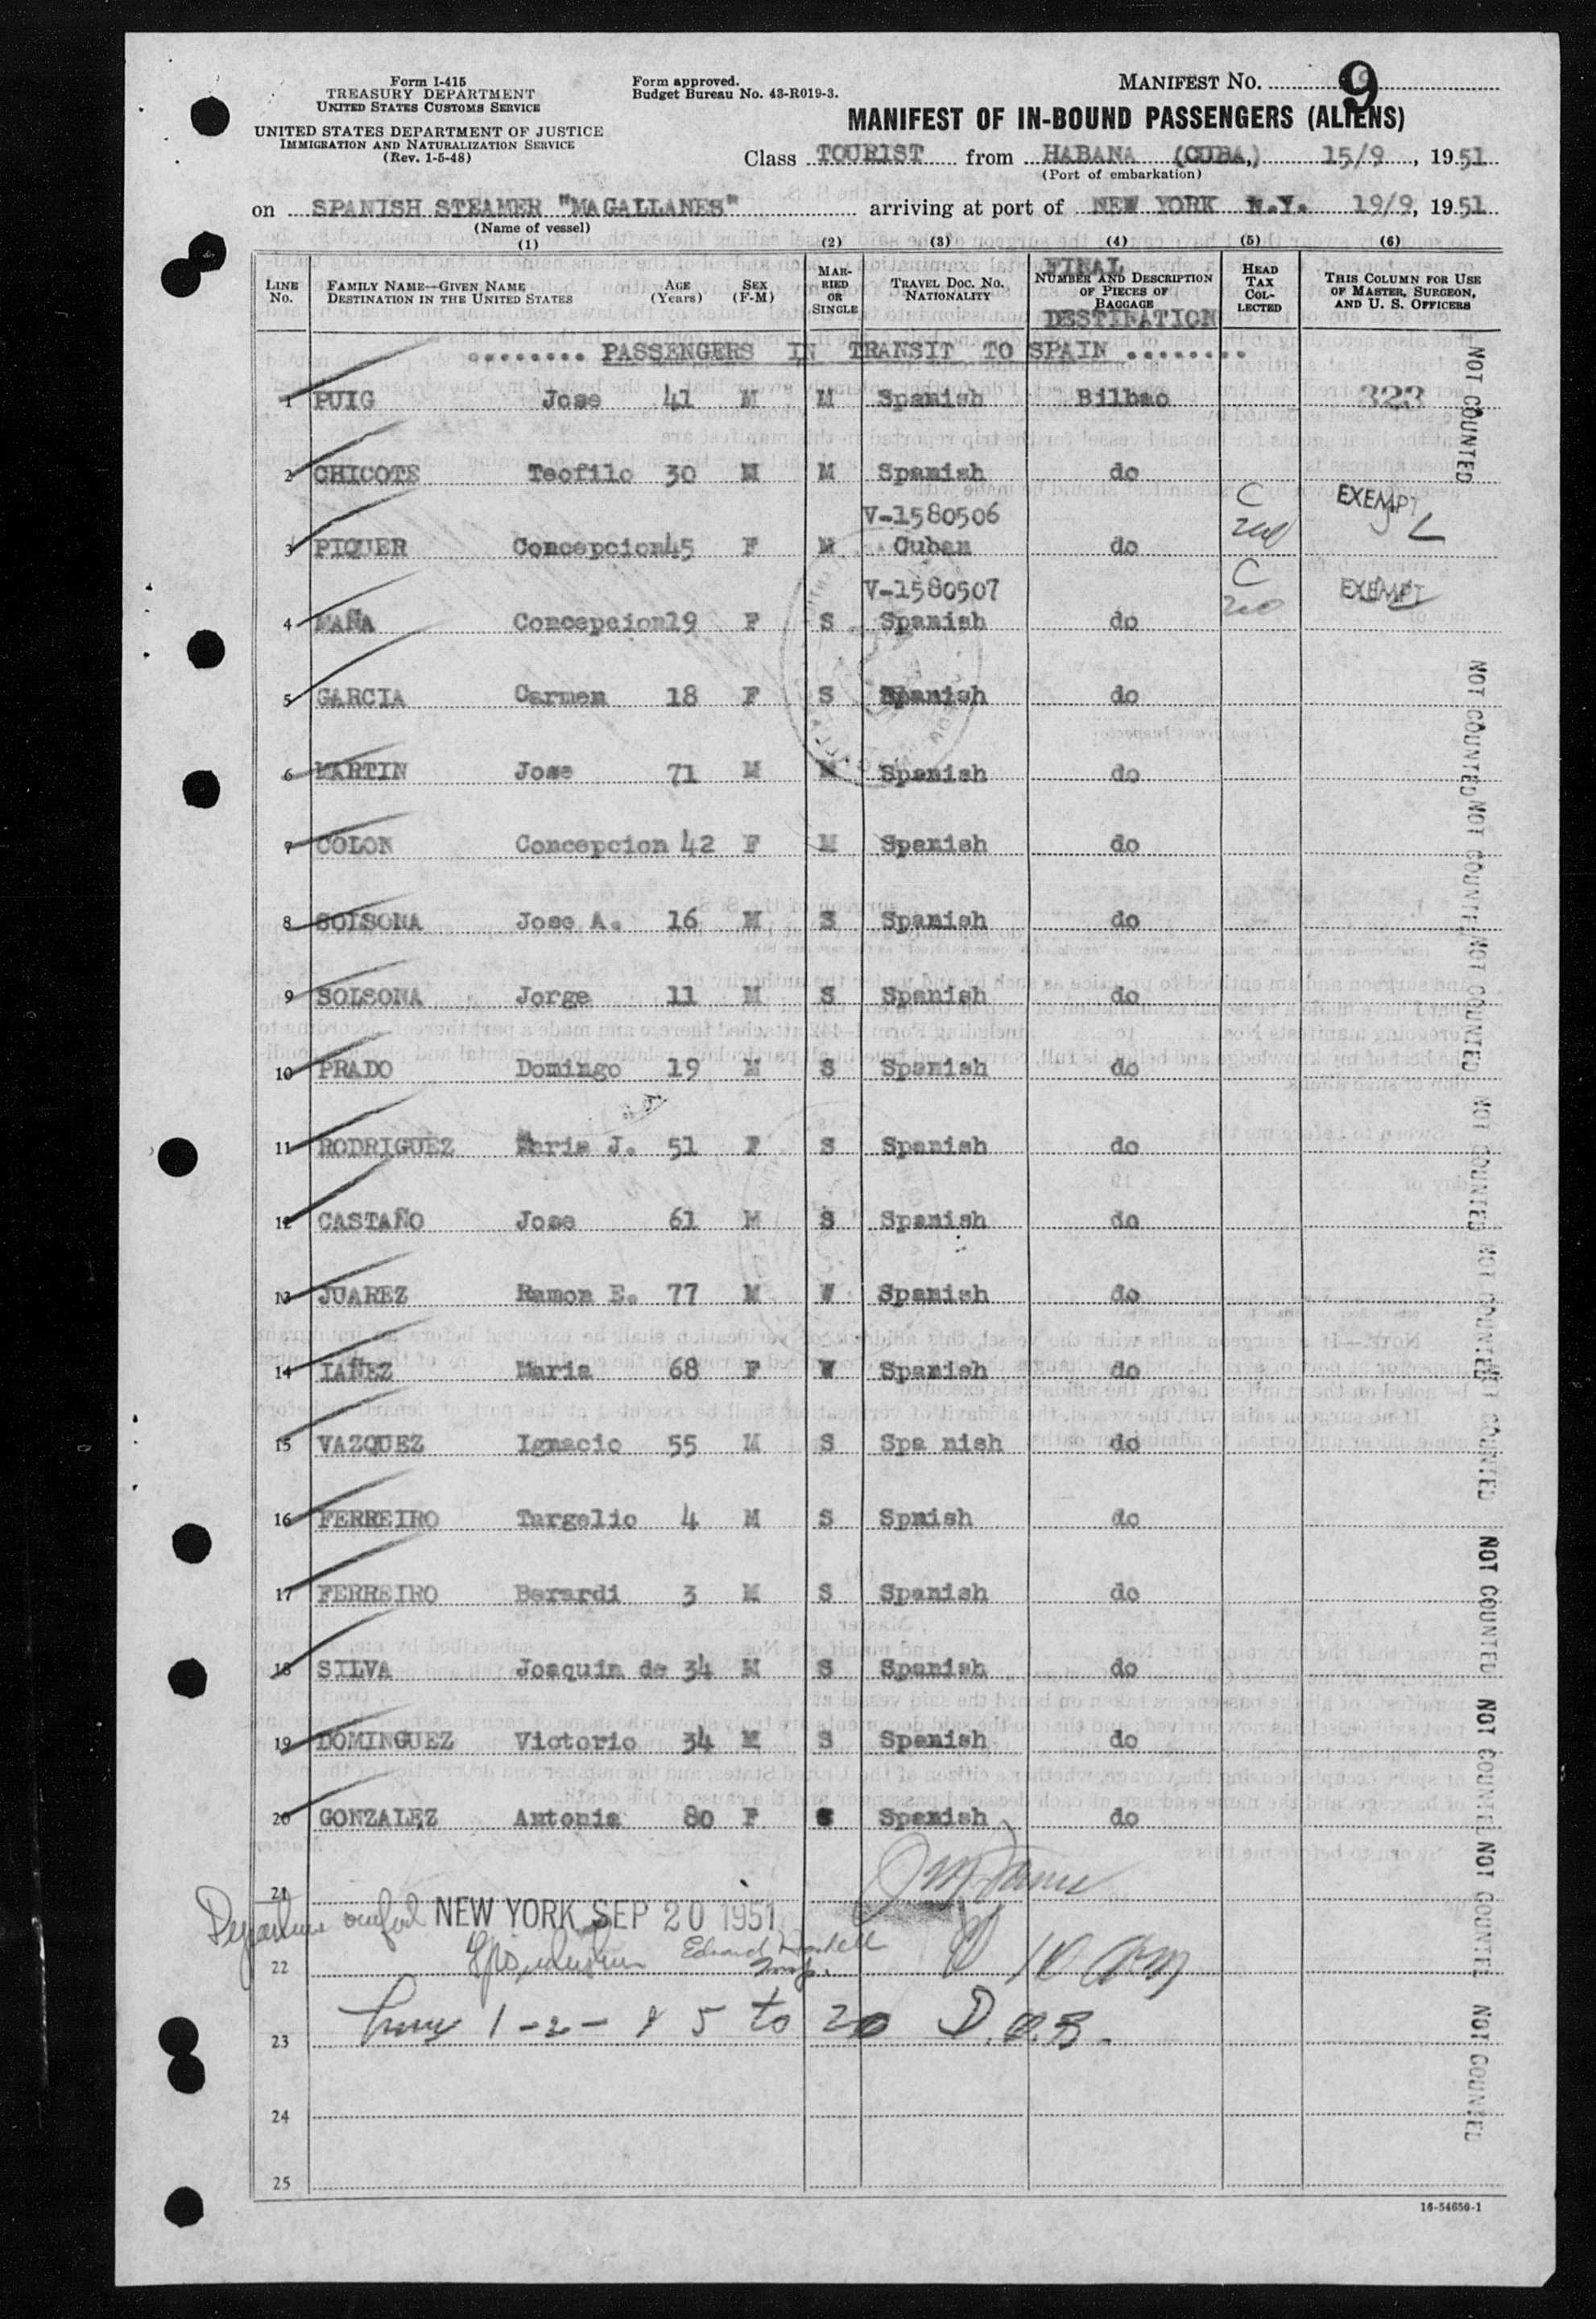 Form I-415
TREASURY DEPARTMENT
UNITED STATES CUSTOMS SERVICE
UNITED STATES DEPARTMENT OF JUSTICE
IMMIGRATION AND NATURALIZATION SERVICE
(Rev. 1-5-48)
Form approved.
Budget Bureau No. 43-R019-3.
MANIFEST NO. 9
MANIFEST OF IN-BOUND PASSENGERS (ALIENS)
Class TOURIST from HABANA (CUBA,) 15/9, 1951
(Port of embarkation)
on SPANISH STEAMER "MAGALLANES" arriving at port of NEW YORK N.Y. 19/9, 1951
(Name of vessel)
(1) (2) (3) (4) (5) (6)
LINE NO. FAMILY NAME—GIVEN NAME DESTINATION IN THE UNITED STATES AGE (YEARS) SEX (F-M) MARRIED OR SINGLE TRAVEL DOC. NO. NATIONALITY NUMBER AND DESCRIPTION OF PIECES OF BAGGAGE HEAD TAX COLLECTED THIS COLUMN FOR USE OF MASTER, SURGEON, AND U. S. OFFICERS
FINAL DESTINATION
........ PASSENGERS IN TRANSIT TO SPAIN ........
1 PUIG Jose 41 M M Spanish Bilbao 323
2 CHICOTE Teofilo 30 M M Spanish do
V-1580506 C EXEMPT
3 PIQUER Concepcion 45 F M Cuban do
V-1580507 C EXEMPT
4 MAÑA Concepcion 19 F S Spanish do
5 GARCIA Carmen 18 F S Spanish do
6 MARTIN Jose 71 M M Spanish do
7 COLON Concepcion 42 F M Spanish do
8 SOLSONA Jose A. 16 M S Spanish do
9 SOLSONA Jorge 11 M S Spanish do
10 PRADO Domingo 19 M S Spanish do
11 RODRIGUEZ Maria J. 51 F S Spanish do
12 CASTAÑO Jose 61 M S Spanish do
13 JUAREZ Ramon E. 77 M W Spanish do
14 IAÑEZ Maria 68 F W Spanish do
15 VAZQUEZ Ignacio 55 M S Spa nish do
16 FERREIRO Targelio 4 M S Spnish do
17 FERREIRO Berardi 3 M S Spanish do
18 SILVA Joaquin de 34 M S Spanish do
19 DOMINGUEZ Victorio 34 M S Spanish do
20 GONZALEZ Antonia 80 F S Spanish do
21
Departure NEW YORK SEP 20 1951
22 Edward 10 am
23 1-2- & 5 to 20
24
25
NOT COUNTED
NOT COUNTED
NOT COUNTED
NOT COUNTED
NOT COUNTED
NOT COUNTED
NOT COUNTED
NOT COUNTED
NOT COUNTED
NOT COUNTED
NOT COUNTED
16-54650-1